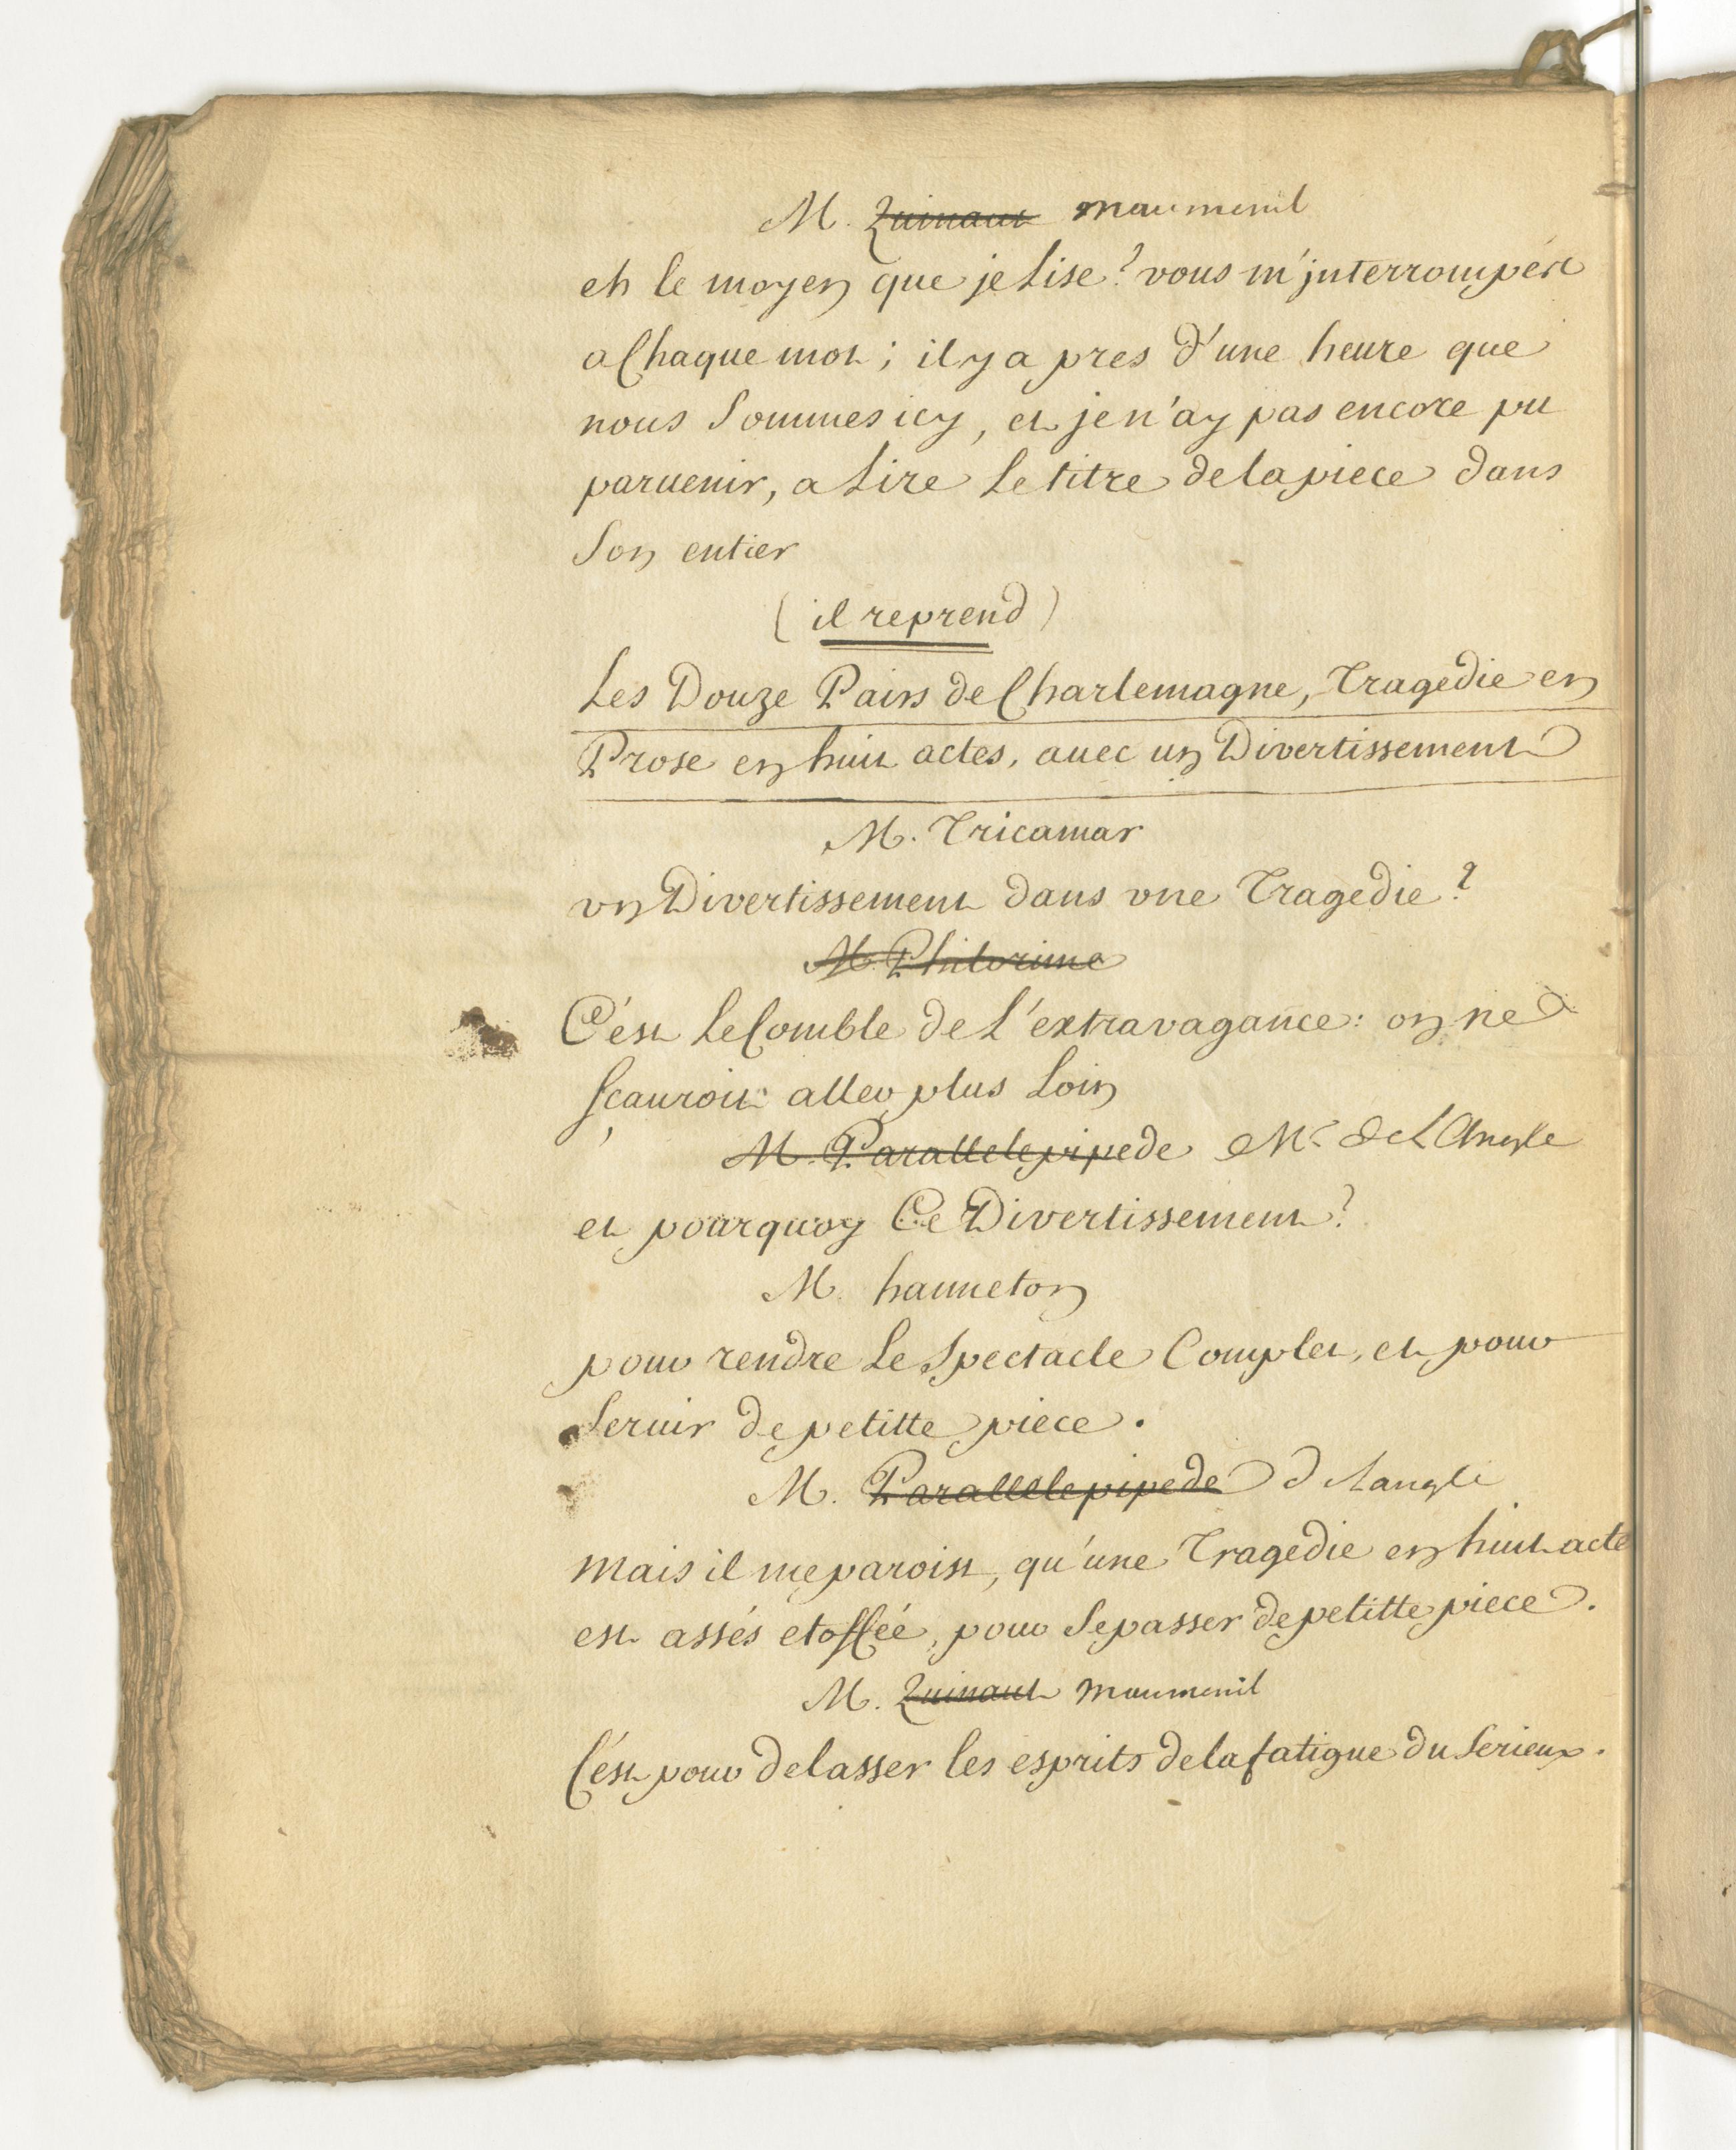 M. Quinaut maumenil
eh le moyen que je Lise? vous m'jnterrompés
a Chaque mot; il y a pres d'une heure que
nous Sommes icy, et je n'ay pas encore pu
paruenir, a Lire Le titre de la piece dans
Son entier
(il reprend)
Les Douze Pairs de Charlemagne, Tragedie en
Prose en huit actes, auec un Divertissement
M. Tricamar
vn Divertissement dans vne Tragedie?
M. Philorime
C'est Le Comble de L'extravagance: on ne
sçauroit aller plus Loin
M. Parallelepipede Mr de L'Angle
et pourquoy Ce Divertissement?
M. hanneton
pour rendre Le Spectacle Complet, et pour
Seruir de petitte piece.
M. Parallelepipede d Langle
Mais il me paroist, qu'une Tragedie en huit acte
est assés etoffée, pour Se passer de petitte piece.
M. Quinaut maumenil
C'est pour delasser les esprits de la fatigue du Serieux.